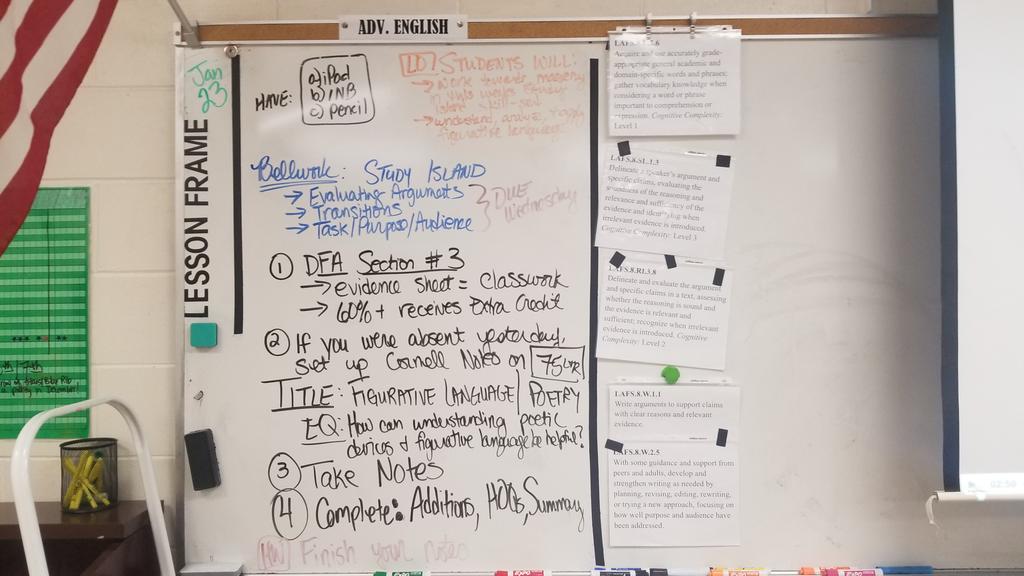 ADV. ENGLISH
Jan
23
LESSON FRAME
HAVE:
a) iPad
b) INB
c) pencil
LO: STUDENTS WILL:
→ work towards mastery
→ understand, analyze,
figurative language
Bellwork: STUDY ISLAND
→ Evaluating Arguments
→ Transitions
→ Task/Purpose/Audience
DUE
Wednesday
① DFA Section #3
→ evidence sheet = Classwork
→ 60%+ receives Extra Credit
② If you were absent yesterday,
set up Cornell Notes on
TITLE: FIGURATIVE LANGUAGE/POETRY
EQ: How can understanding poetic
devices & figurative language be helpful?
③ Take Notes
④ Complete: Additions, HOQs, Summary
HW Finish your notes
Acquire and use accurately grade-
appropriate general academic and
domain-specific words and phrases;
gather vocabulary knowledge when
considering a word or phrase
important to comprehension or
expression. Cognitive Complexity:
Level 1
LAFS.8.SL.1.3
Delineate a speaker's argument and
specific claims, evaluating the
soundness of the reasoning and
relevance and sufficiency of the
evidence and identifying when
irrelevant evidence is introduced.
Cognitive Complexity: Level 3
LAFS.8.RI.3.8
Delineate and evaluate the argument
and specific claims in a text, assessing
whether the reasoning is sound and
the evidence is relevant and
sufficient; recognize when irrelevant
evidence is introduced. Cognitive
Complexity: Level 2
LAFS.8.W.1.1
Write arguments to support claims
with clear reasons and relevant
evidence.
LAFS.8.W.2.5
With some guidance and support from
peers and adults, develop and
strengthen writing as needed by
planning, revising, editing, rewriting,
or trying a new approach, focusing on
how well purpose and audience have
been addressed.
02:50